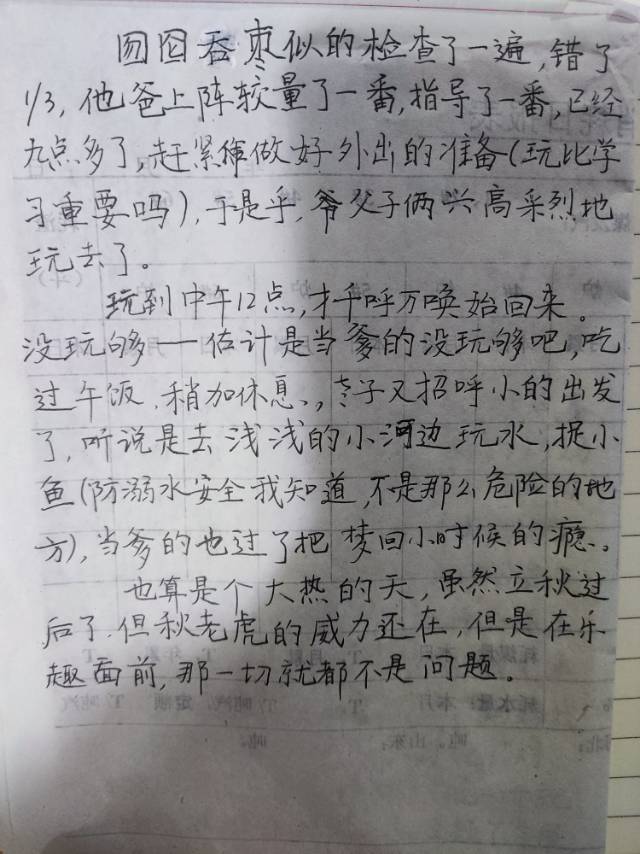 囫囵吞枣似的检查了一遍,错了
1/3,他爸上阵较量了一番,指导了一番,已经
九点多了,赶紧做好外出的准备(玩比学
习重要吗),于是乎,爷父子俩兴高采烈地
玩去了。
玩到中午12点,才千呼万唤始回来。
没玩够——估计是当爹的没玩够吧,吃
过午饭,稍加休息,老子又招呼小的出发
了,听说是去浅浅的小河边玩水,捉小
鱼(防溺水安全我知道,不是那么危险的地
方),当爹的也过了把梦回小时候的瘾。
也算是个大热的天,虽然立秋过
后了,但秋老虎的威力还在,但是在乐
趣面前,那一切就都不是问题。